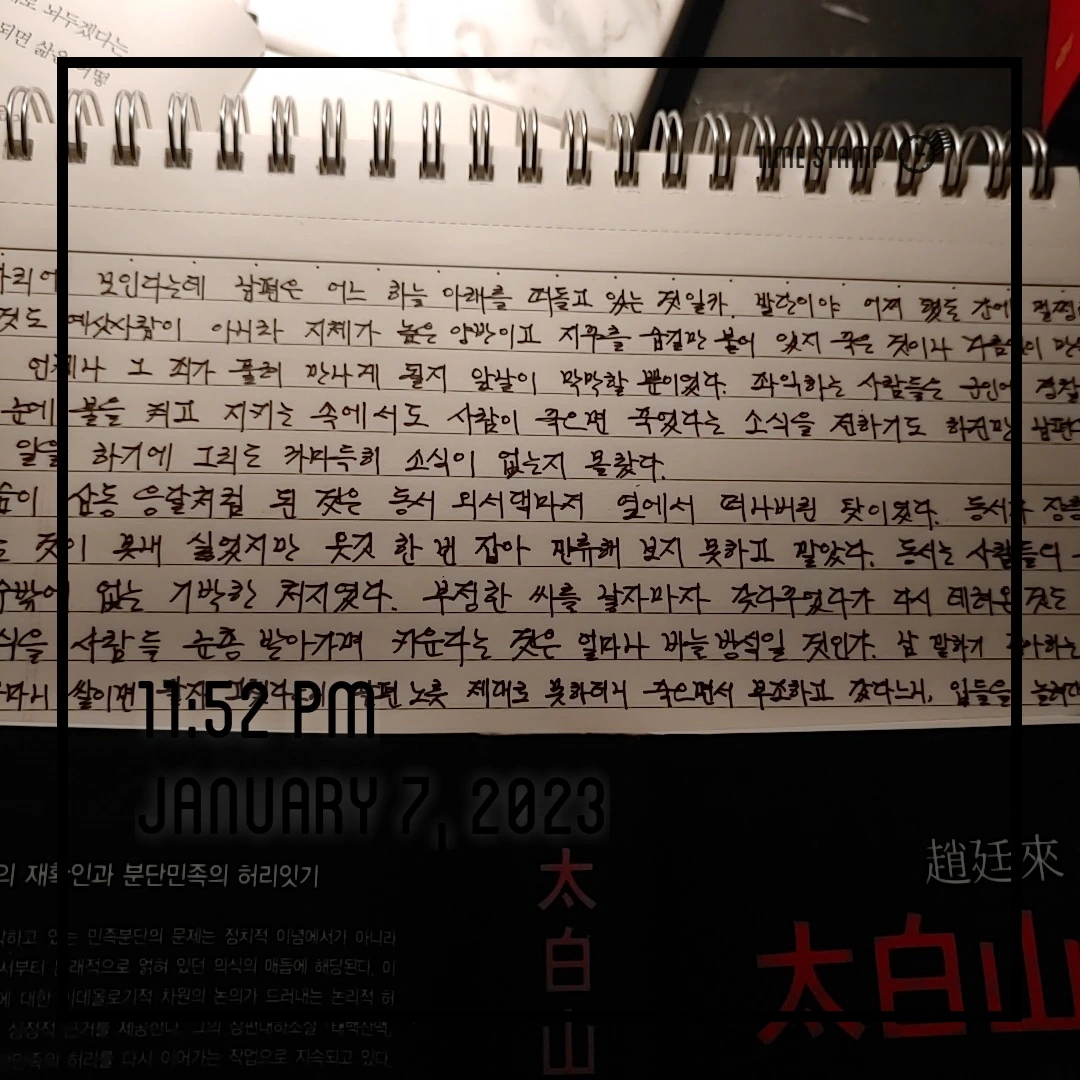 로 놔두겠다는
되면 삶은 어떻
TIME STAMP
보인다는데 남편은 어느 하늘 아래를 떠돌고 있는 것일까. 발단이야 어찌 됐든 간에
것도 예삿사람이 아니라 지체가 높은 양반이고 지주를 숨길만 붙어 있지 죽은 것이나 다름없이
언제나 그 죄가 풀려 만나게 될지 앞날이 막막할 뿐이었다. 좌익하는 사람들은 군인에 경찰
눈에 불을 켜고 지키는 속에서도 사람이 죽으면 죽었다는 소식을 전하기도 하건만 남편
알을 하기에 그리도 까마득히 소식이 없는지 몰랐다.
삼동 응달처럼 된 것은 동서 외서댁마저 옆에서 떠나버린 탓이었다. 동서가
것이 못내 싫었지만 옷깃 한 번 잡아 만류해 보지 못하고 말았다. 동서는 사람들의
수밖에 없는 기박한 처지였다. 부정한 씨를 낳자마자 갖다주었다가 다시 데려온 것도
식을 사람들 눈총 받아가며 키운다는 것은 얼마나 바늘방석일 것인가. 남 말하기 좋아하는
쌓이면 남편 노릇 제대로 못하더니 죽으면서 무조하고 갔다느니, 입들을
11:52 PM
JANUARY 7, 2023
의 재확인과 분단민족의 허리잇기
있는 민족분단의 문제는 정치적 이념에서가 아니라
서부터 래적으로 얽혀 있던 의식의 매듭에 해당된다. 이
에 대한 이데올로기적 차원의 논의가 드러내는 논리적 허
상정적 근거를 제공한다. 그의 장편대하소설 「태백산맥」
허리를 다시 이어가는 작업으로 지속되고 있다.
太白山
趙廷來
太白山